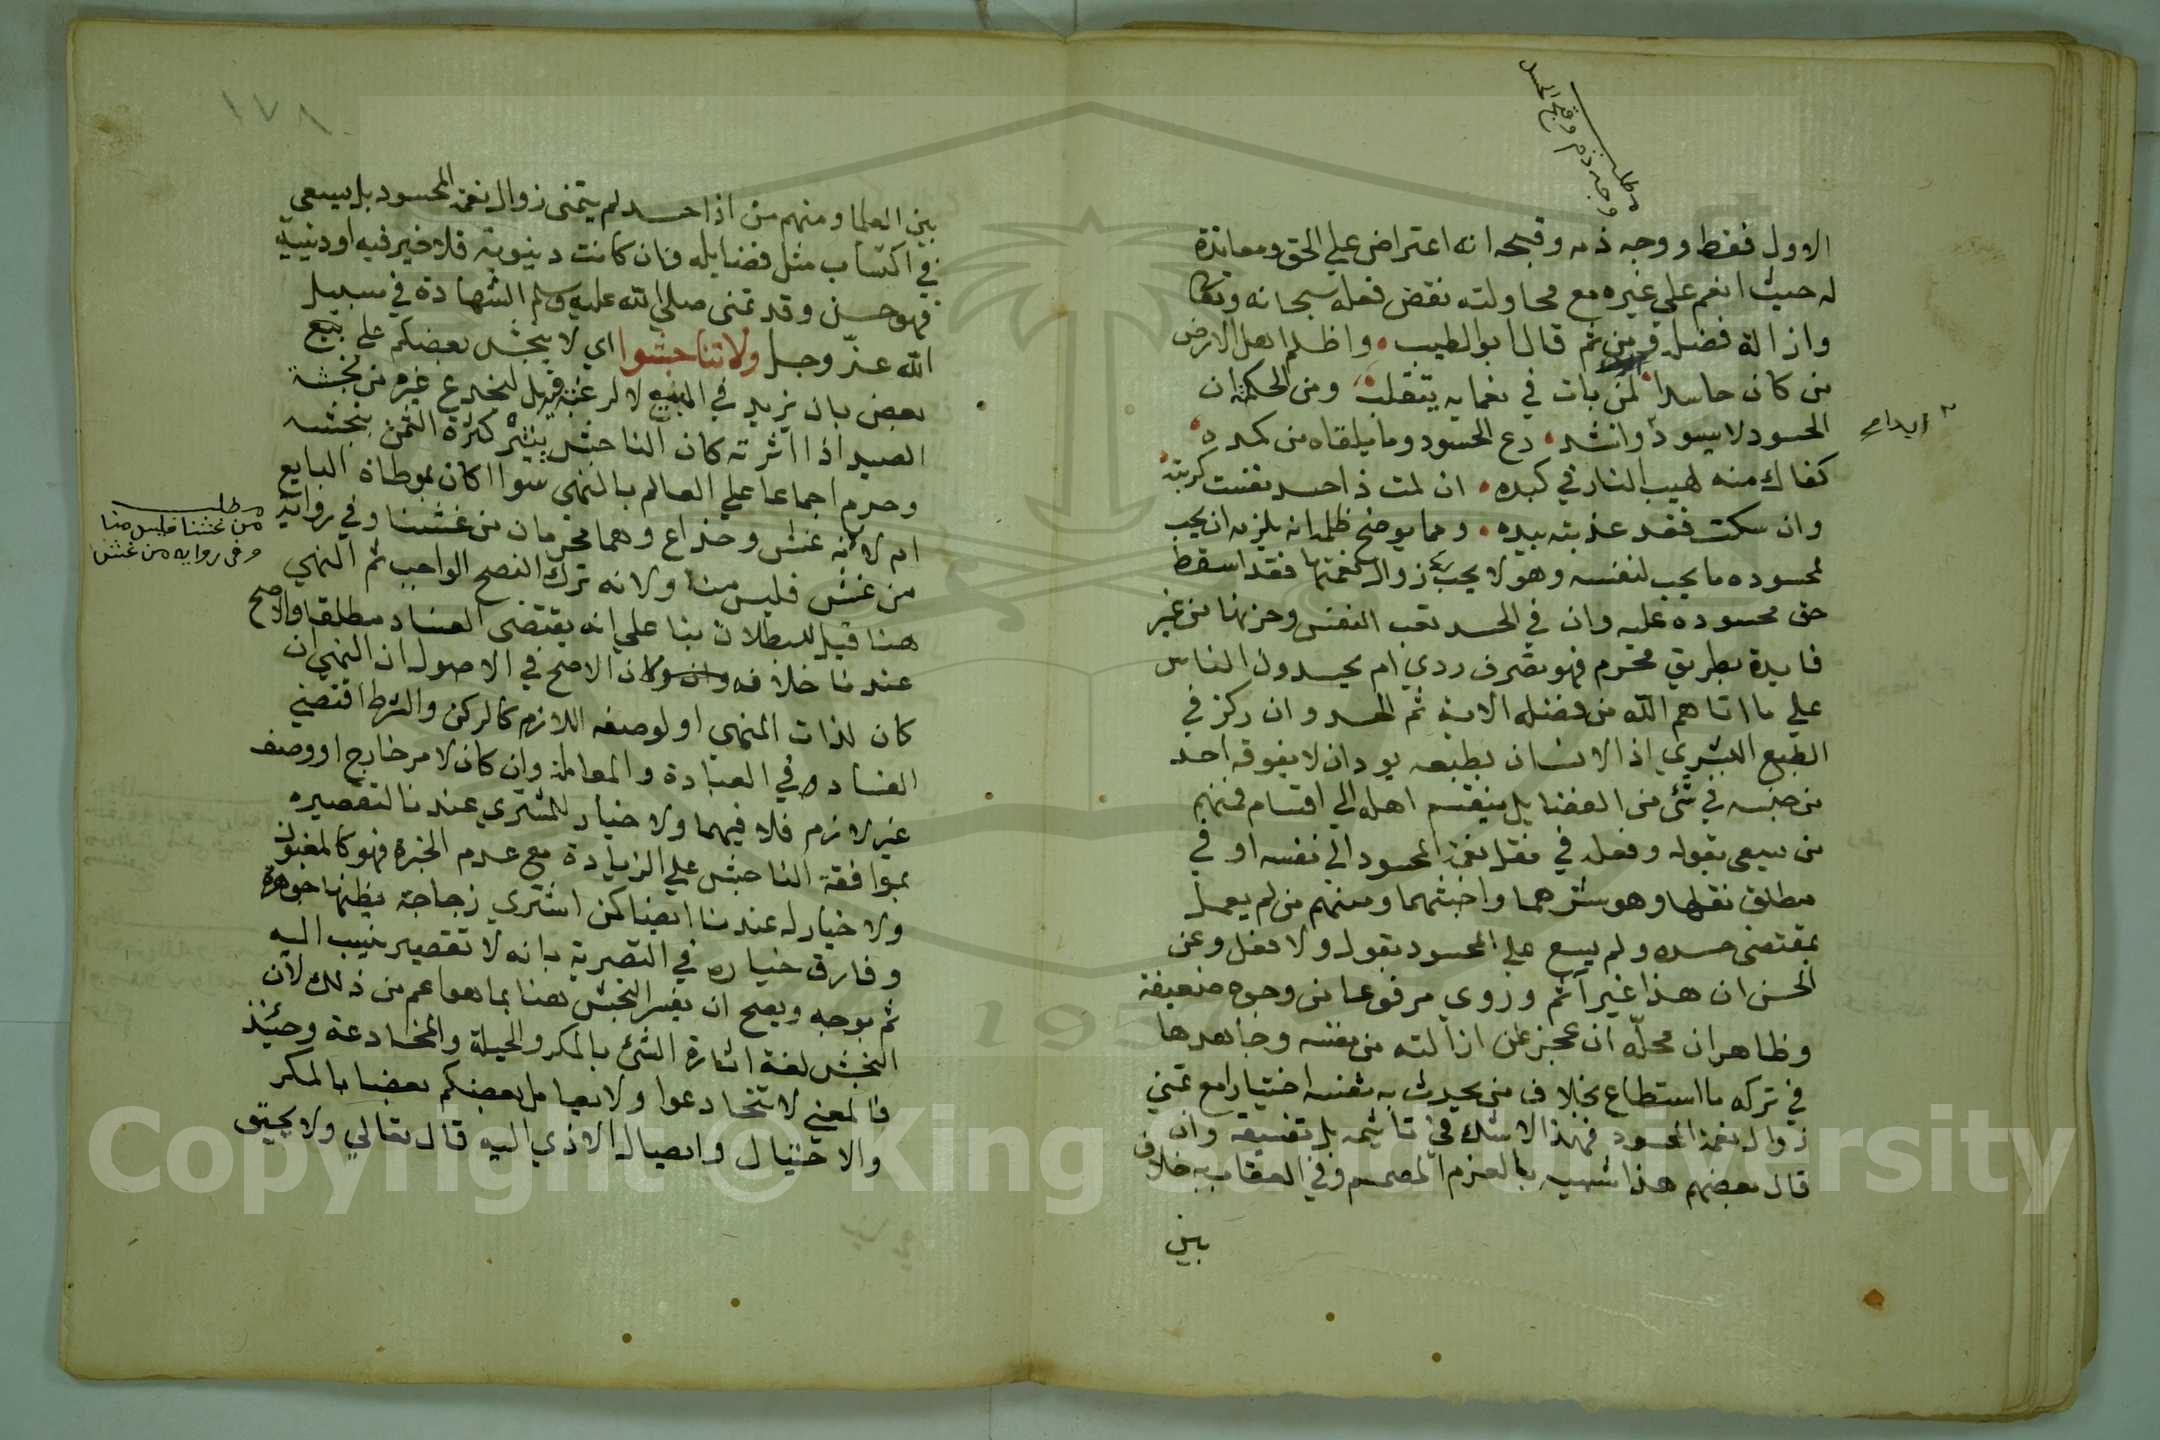 مطلب
وجه ذم وقبح الحسد
الاول فقط ووجه ذمه وقبحه انه اعتراض علي الحق ومعاندة
له حيث انعم علي غيره مع محاولته نقض فعله سبحانه وتعا
وازالة فضله ومن ثم قال ابو الطيب واظلم اهل الارض
من كان حاسدا لمن بات في نعمايه يتقلب ومن الحكمة ان
الحسود لا يسود وانشد دع الحسود وما يلقاه من كمده
ابدا صح
كفاك منه لهيب النار في كبده ان لمت ذا حسد نفست كربته
وان سكت فقد عذبته بيده ومما يوضح ظلمه انه يلزمه ان يحب
لمحسوده ما يحب لنفسه وهو لا يحب لها زوال نعمتها فقد اسقط
حق محسوده عليه وان في الحسد تعب النفس وحزنها من غير
فايدة بطريق محرم فهو تصرف ردي ام يحسدون الناس
علي ما اتاهم الله من فضله الاية ثم الحسد وان ركز في
الطبع البشري اذ الانسان بطبعه يود ان لا يفوقه احد
من جنسه في شئ من الفضايل ينقسم اهله الي اقسام فمنهم
من يسعي بقوله وفعله في نقل نعمة المحسود الي نفسه او في
مطلق نقلها وهو شرهما واخبثهما ومنهم من لم يعمل
بمقتضى حسده ولم يسع علي المحسود بقول ولا فعل وعن
الحسن ان هذا غير آثم وروي مرفوعا من وجوه ضعيفة
وظاهر ان محله ان عجز عن ازالته من نفسه وجاهدها
في تركه ما استطاع بخلاف من يحدث به نفسه اختيارا مع تمني
زوال نعمة المحسود فهذا لا شك في تاثيمه بل تفسيقه وان
قال بعضهم هذا شبيه بالعزم المصمم وفي العقاب به خلاف
بين
١٧٨
بين العلما ومنهم من اذا حسد لم يتمنى زوال نعمة المحسود بل يسعى
في اكتساب مثل فضايله فان كانت دنيوية فلا خير فيه او دينية
فهو حسن وقد تمنى صلي الله عليه وسلم الشهادة في سبيل
الله عزّ وجل ولا تناجشوا اي لا ينجش بعضكم علي بيع
بعض بان يزيد في المبيع لا لرغبة فيه بل ليخدع غيره من نجشت
الصيد اذا اثرته كان الناجش يثير كثرة الثمن بنجشه
وحرم اجماعا علي العالم بالنهى سوا اكان بمواطاة البايع
ام لا لانه غش وخداع وهما محرمان من غشنا وفي رواية
من غش فليس منا ولانه ترك النصح الواجب ثم النهي
مطلب
من غشنا فليس منا
وفي رواية من غش
هنا قيل للبطلان بنا علي انه يقتضى الفساد مطلقا والاصح
عندنا خلافه لان الاصح في الاصول ان النهى ان
كان لذات المنهى او لوصفه اللازم كالركن والشرط اقتضي
الفساد في العبادة والمعاملة وان كان لامر خارج او وصف
غير لازم فلا فيهما ولا خيار للمشتري عندنا لتقصيره
بموافقة الناجش علي الزيادة مع عدم الخبرة فهو كالمغبون
ولا خيار له عندنا ايضا كمن اشتري زجاجة يظنها جوهرة
وفارق خياره في التصرية بانه لا تقصير ينسب اليه
ثم بوجه ويصح ان يفسر النجش هنا بما هو اعم من ذلك لان
النجش لغة اثارة الشئ بالمكر والحيلة والمخادعة وحينئذ
فالمعني لا تتخادعوا ولا يعامل بعضكم بعضا بالمكر
والاحتيال وايصال الاذي اليه قال تعالي ولا يحيق
Copyright © King Saud University
1957